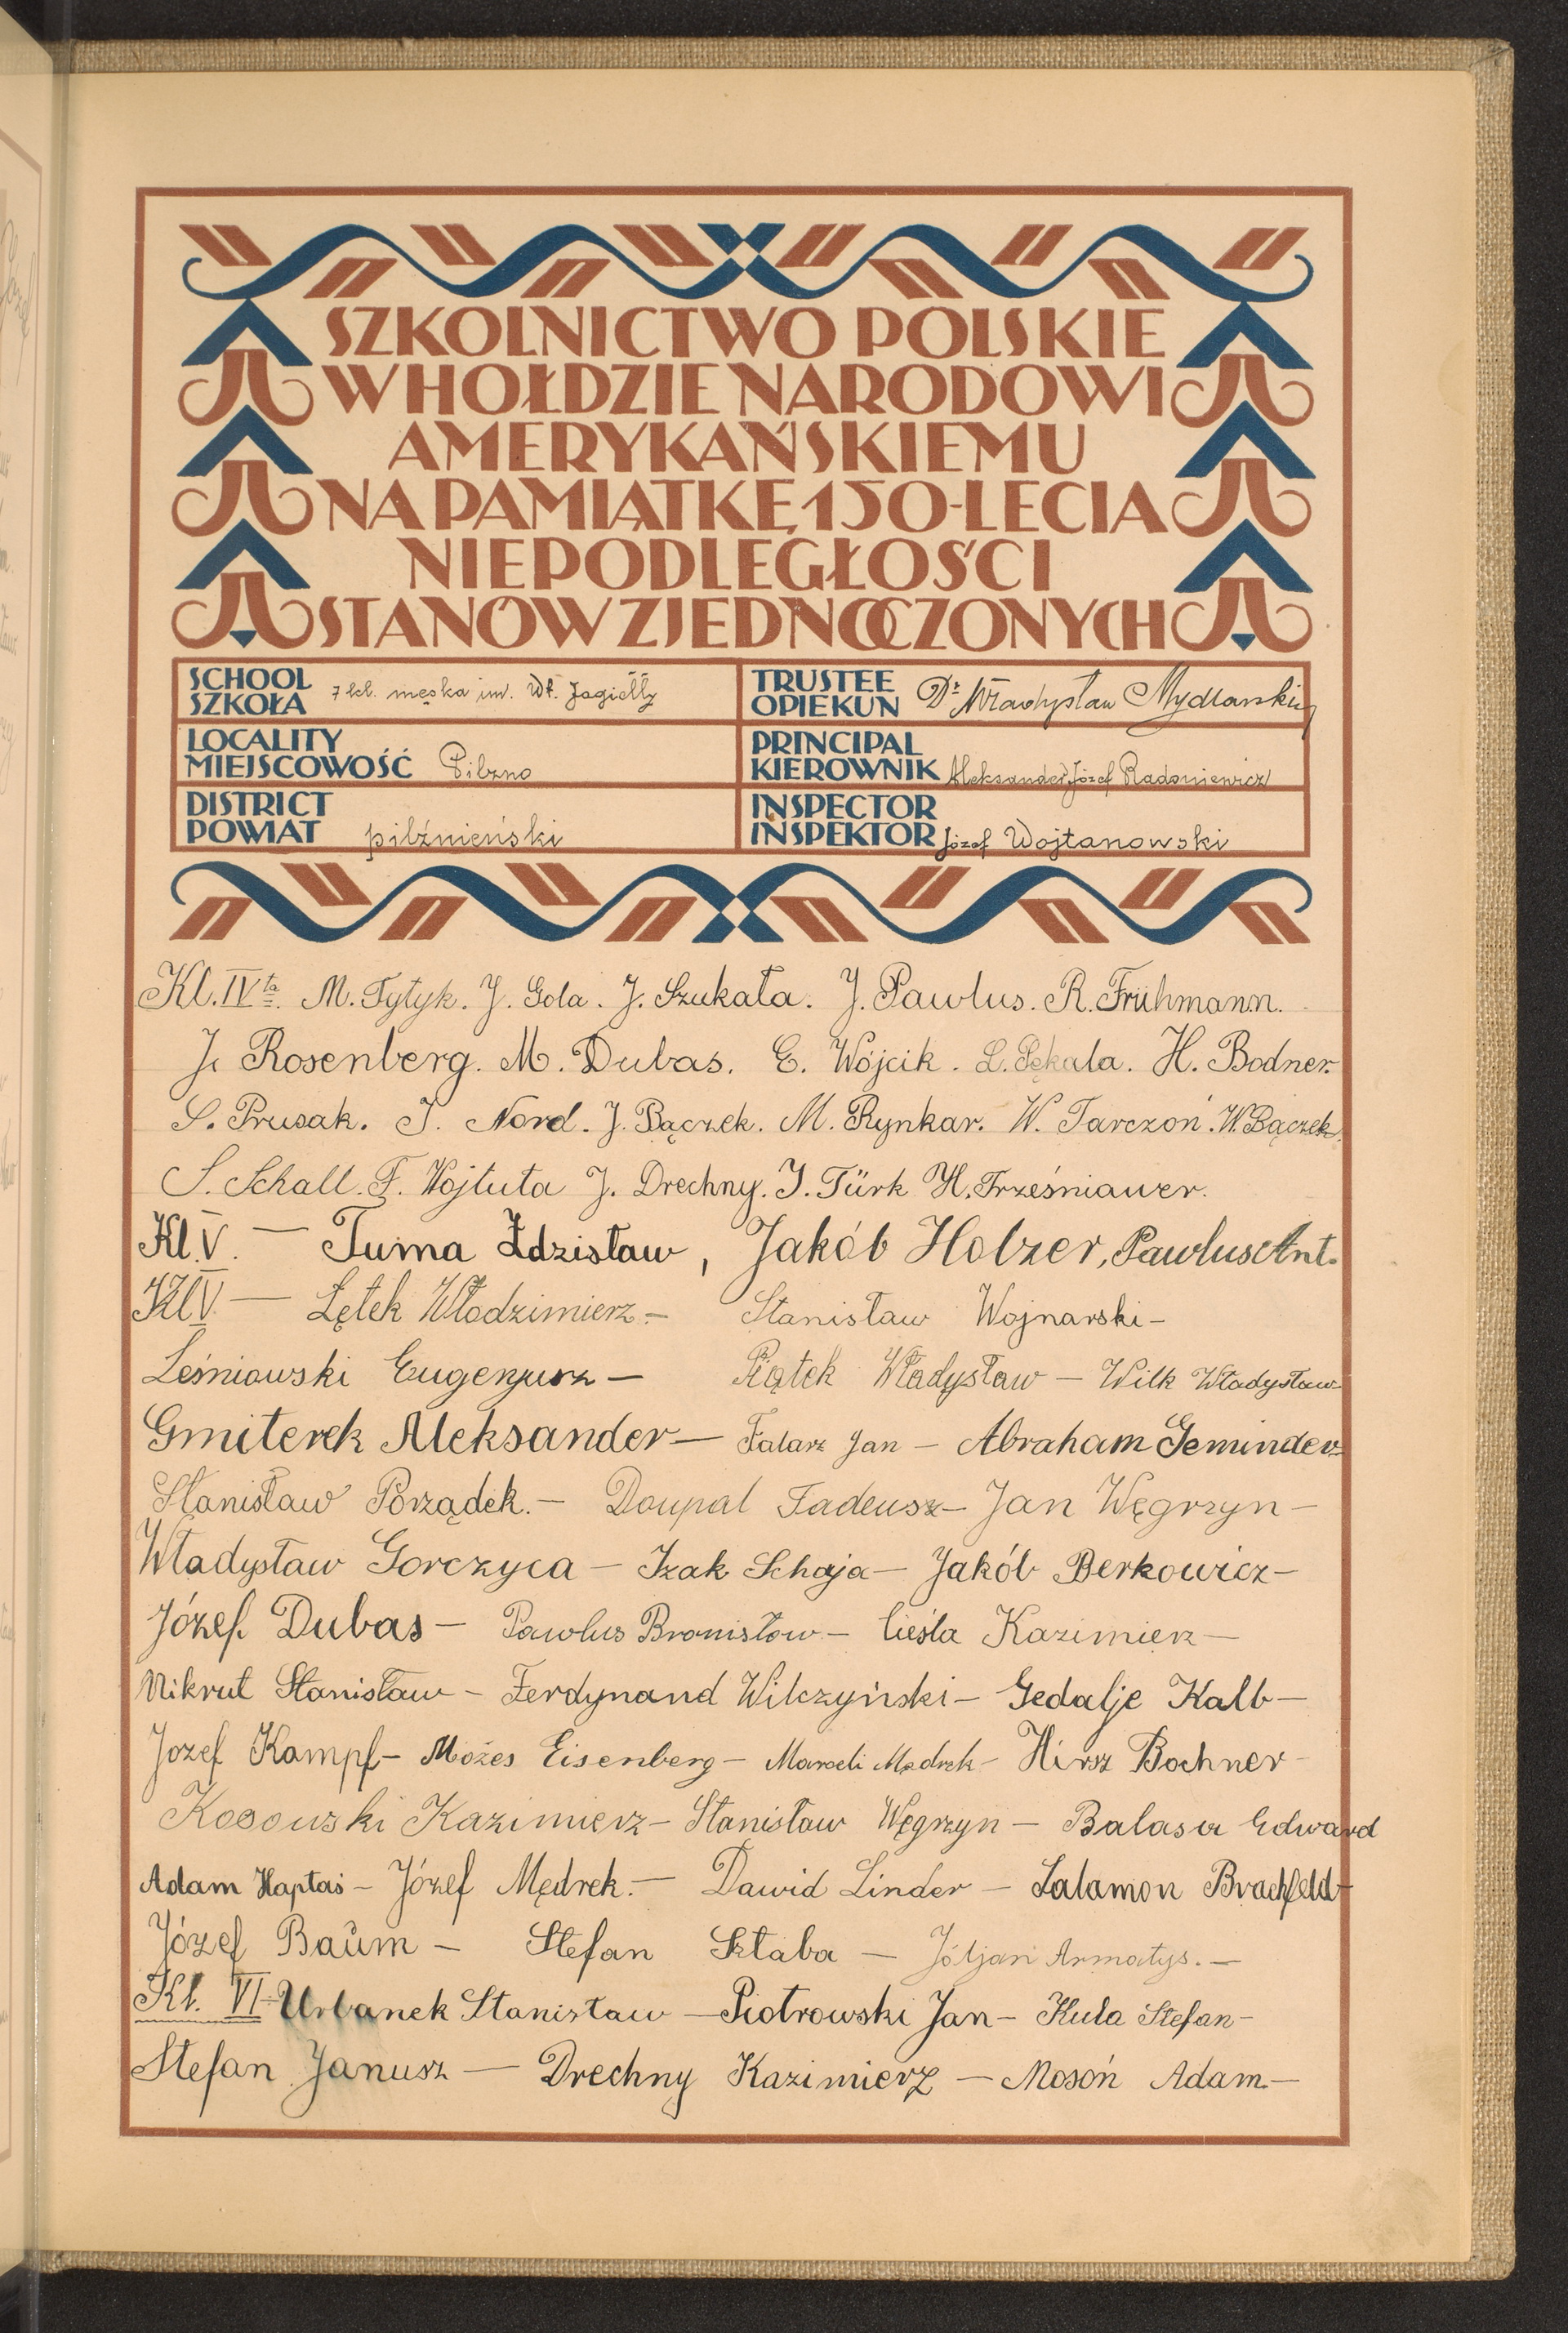 SZKOLNICTWO POLSKIE
W HOŁDZIE NARODOWI
AMERYKAŃSKIEMU
NA PAMIĄTKĘ 150-LECIA
NIEPODLEGŁOŚCI
STANÓW ZJEDNOCZONYCH
SCHOOL
SZKOŁA 7 kl. męska im. Wł. Jagiełły
TRUSTEE
OPIEKUN Dr Władysław Mydlarski
LOCALITY
MIEJSCOWOŚĆ Pilzno
PRINCIPAL
KIEROWNIK Aleksander Józef Radoniewicz
DISTRICT
POWIAT pilźnieński
INSPECTOR
INSPEKTOR Józef Wojtanowski
Kl. IVta. M. Tytyk. J. Gola. J. Szukała. J. Pawlus. R. Frühmann.
J. Rosenberg. M. Dubas. E. Wójcik. L. Pękala. H. Bodner.
S. Prusak. J. Nord. J. Bączek. M. Rynkar. W. Tarczoń. W. Bączek.
S. Schall. F. Wojtuta J. Drechny. J. Türk H. Trześniawer.
Kl. V. — Tuma Zdzisław, Jakób Holzer, Pawlus Ant.
Kl V — Lętek Włodzimierz — Stanisław Wojnarski —
Leśniowski Eugenjusz — Piątek Władysław — Wilk Władysław
Gmiterek Aleksander — Falarz Jan — Abraham Geminder
Stanisław Porządek. — Doupal Tadeusz — Jan Węgrzyn —
Władysław Gorczyca — Izak Schaja — Jakób Berkowicz —
Józef Dubas — Pawlus Bronisław — Cieśla Kazimierz —
Nikrut Stanisław — Ferdynand Wilczyński — Gedalje Kalb —
Jozef Kampf — Możes Eisenberg — Marceli Mędrek — Hirsz Bochner —
Kosowski Kazimierz — Stanisław Węgrzyn — Balasa Edward
Adam Haptaś — Józef Mędrek. — Dawid Linder — Salamon Brachfeld —
Józef Baŭm — Stefan Sztaba — Armatys. —
Kl. VI — Urbanek Stanisław — Piotrowski Jan — Kula Stefan —
Stefan Janusz — Drechny Kazimierz — Mosoń Adam —